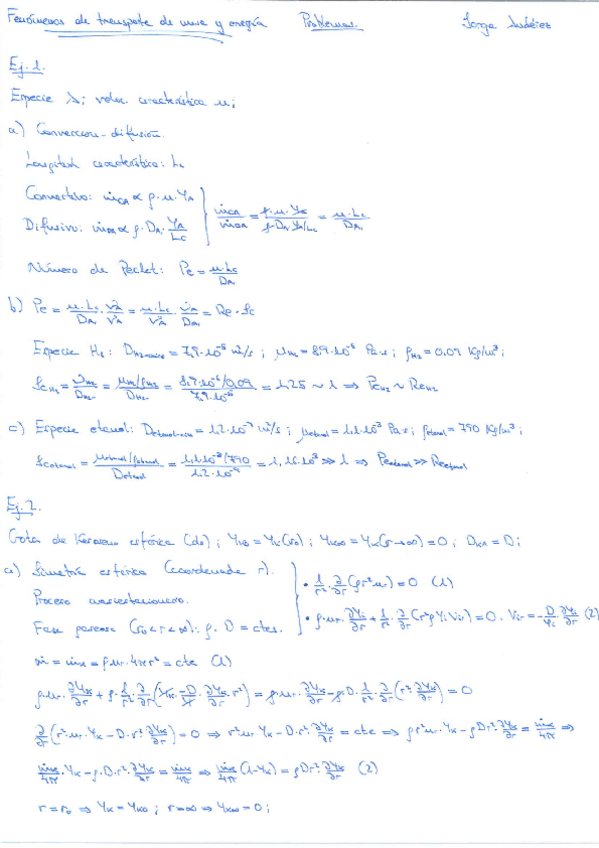 Fenómenos de transporte de masa y energía Problemas. Jorge
Ej. 1.
Especie A; veloc. característica u;
a) Convección-difusión.
Longitud característica: Lc
Convectivo: ṁCA ∝ ρ·u·YA
Difusivo: ṁDA ∝ ρ·DA·YA/Lc } ṁCA/ṁDA = ρ·u·YA/(ρ·DA·YA/Lc) = u·Lc/DA
Número de Peclet: Pe = u·Lc/DA
b) Pe = u·Lc/DA · νA/νA = u·Lc/νA · νA/DA = Re·Sc
Especie H2: = 7,9·10⁻⁵ m²/s; μH2 = 8,9·10⁻⁶ Pa·s; ρH2 = 0.09 Kg/m³;
ScH2 = νH2/DH2 = μH2/ρH2/DH2 = 8,9·10⁻⁶/0.09/7,9·10⁻⁵ = 1.25 ~ 1 ⇒ PeH2 ~ ReH2
c) Especie etanol: = 1.2·10⁻⁹ m²/s; μetanol = 1.1·10⁻³ Pa·s; ρetanol = 790 Kg/m³;
Scetanol = μetanol/ρetanol/Detanol = 1.1·10⁻³/790/1.2·10⁻⁹ = 1,16·10³ ≫ 1 ⇒ Peetanol ≫ Reetanol
Ej. 2.
Gota de Keroseno esférica (d0); YK0 = YK(r0); YK∞ = YK(r→∞) = 0; DKA = D;
a) Simetría esférica (coordenada r). • 1/r² · ∂/∂r (ρr²ur) = 0 (1)
Proceso cuasiestacionario.
Fase gaseosa (r0 < r < ∞): ρ·D = ctes. • ρ·ur·∂Yi/∂r + 1/r² · ∂/∂r (r²ρYiVir) = 0. Vir = -D/Yi · ∂Yi/∂r (2)
ṁ = ṁK = ρur·4πr² = cte (1)
ρur·∂YK/∂r + ρ·1/r² · ∂/∂r (YK·-D/YK · ∂YK/∂r · r²) = ρ·ur·∂YK/∂r - ρ·D·1/r² · ∂/∂r (r²·∂YK/∂r) = 0
∂/∂r (r²ur·YK - D·r²·∂YK/∂r) = 0 ⇒ r²ur YK - D·r²·∂YK/∂r = cte ⇒ ρr²ur·YK - ρDr²·∂YK/∂r = ṁK/4π ⇒
ṁK/4π · YK - ρ·D·r²·∂YK/∂r = ṁK/4π ⇒ ṁK/4π (1-YK) = ρDr²·∂YK/∂r (2)
r = r0 ⇒ YK = YK0; r = ∞ ⇒ YK∞ = 0;